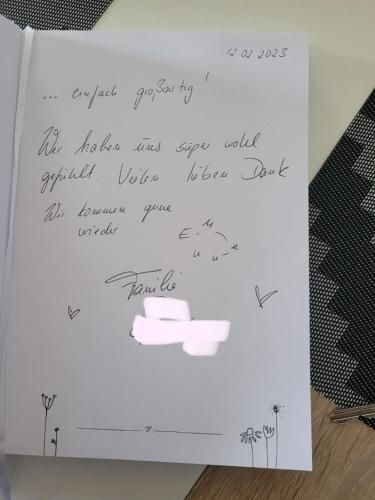 12.02.2023
... einfach großartig!
Wir haben uns super wohl
gefühlt Vielen lieben Dank
Wir kommen gerne
wieder
Familie